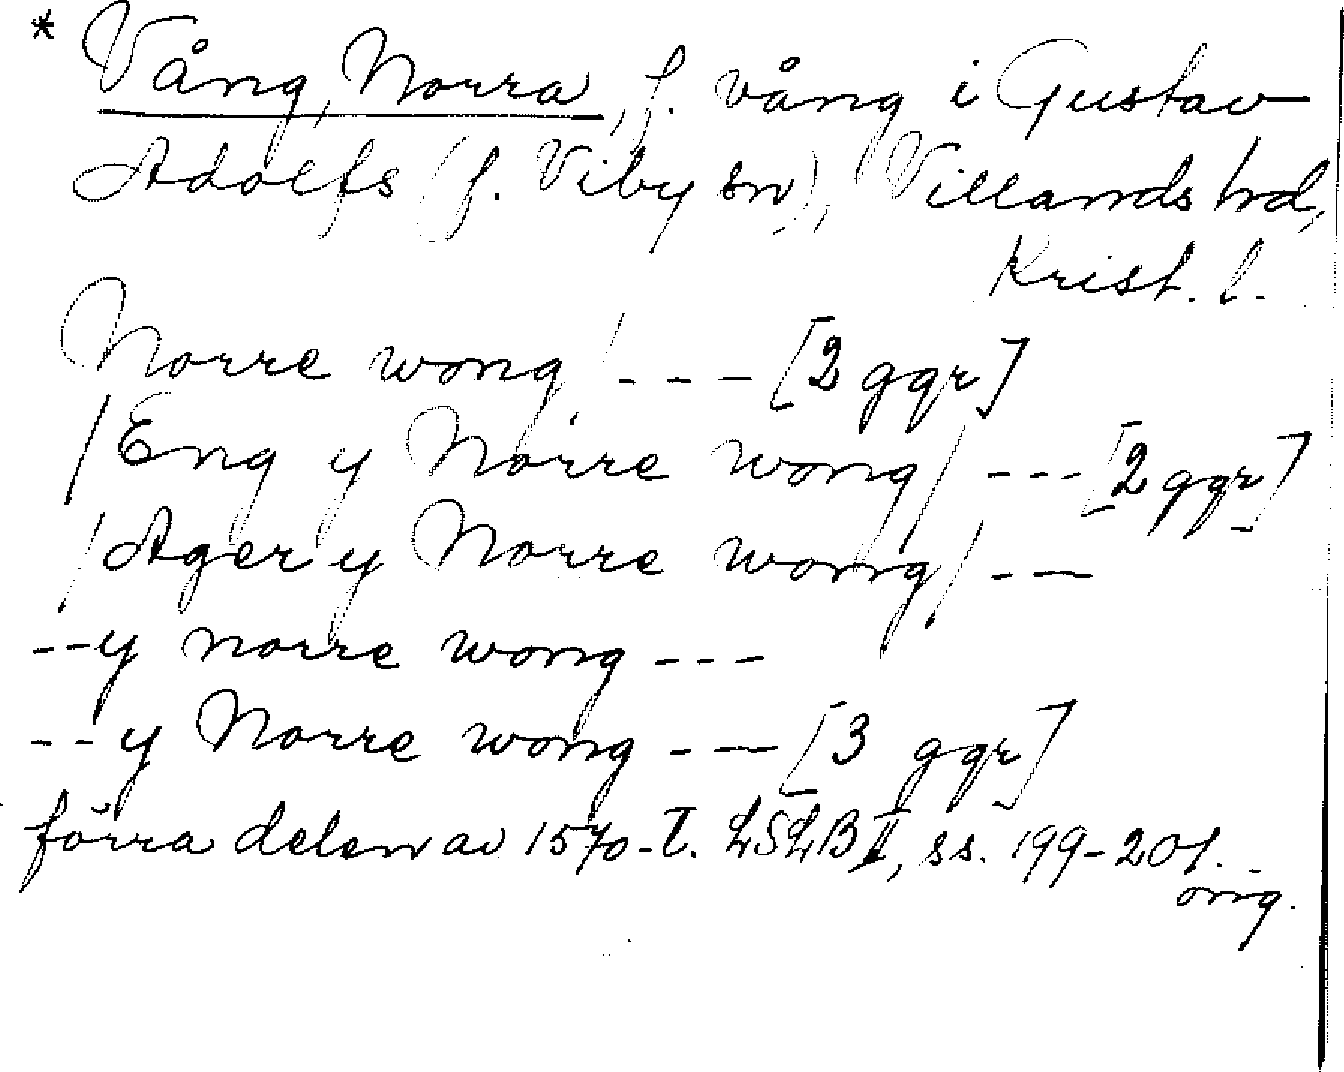 * Vång, Norra, f. vång i Gustav
Adolfs (f. Viby sn), Villands hd,
Krist. l.
Norre wong --- [2 ggr]
/Eng y Nørre wong/ --- [2 ggr]
/Ager y Norre wong/ ---
-- y norre wong ---
-- y Norre wong --- [3 ggr]
förra delen av 1570-t. LSLB II, ss. 199-201.
orig.